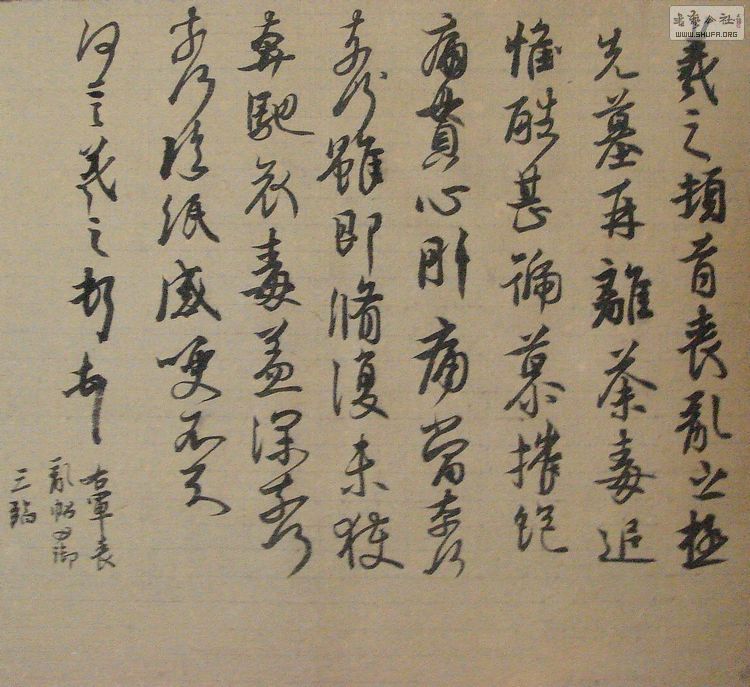 羲之頓首喪亂之極
先墓再離荼毒追
惟酷甚號慕摧絕
痛貫心肝痛當奈何
奈何雖即脩復未獲
奔馳哀毒益深奈何
奈何臨紙感哽不知
何言羲之頓首
右軍喪
亂帖
三臨
書藝公社
WWW.SHUFA.ORG